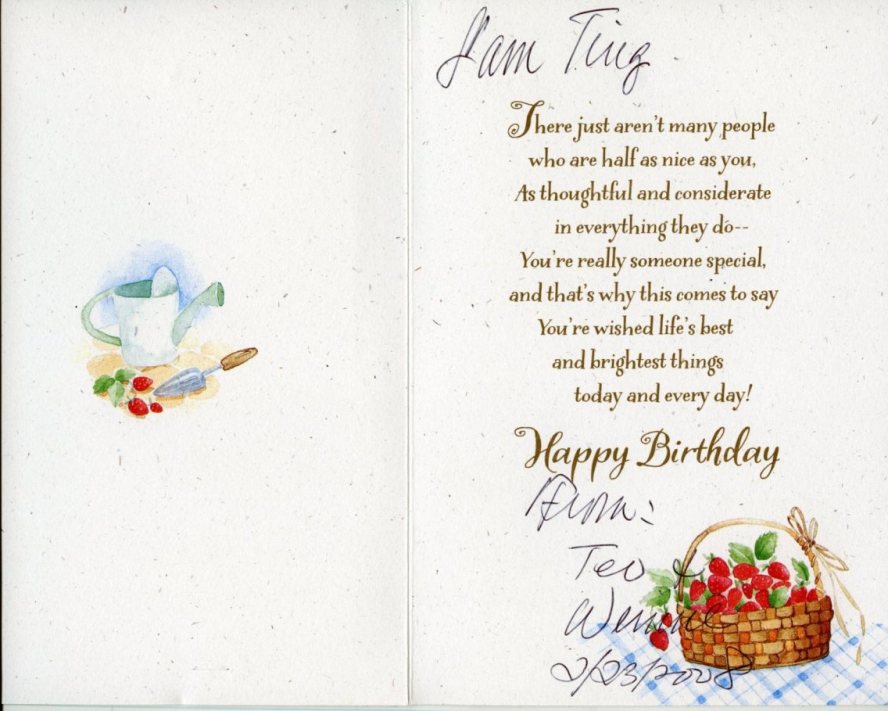 Tam Ting
There just aren't many people
who are half as nice as you,
As thoughtful and considerate
in everything they do--
You're really someone special,
and that's why this comes to say
You're wished life's best
and brightest things
today and every day!
Happy Birthday
From:
Teo &
2/23/2008